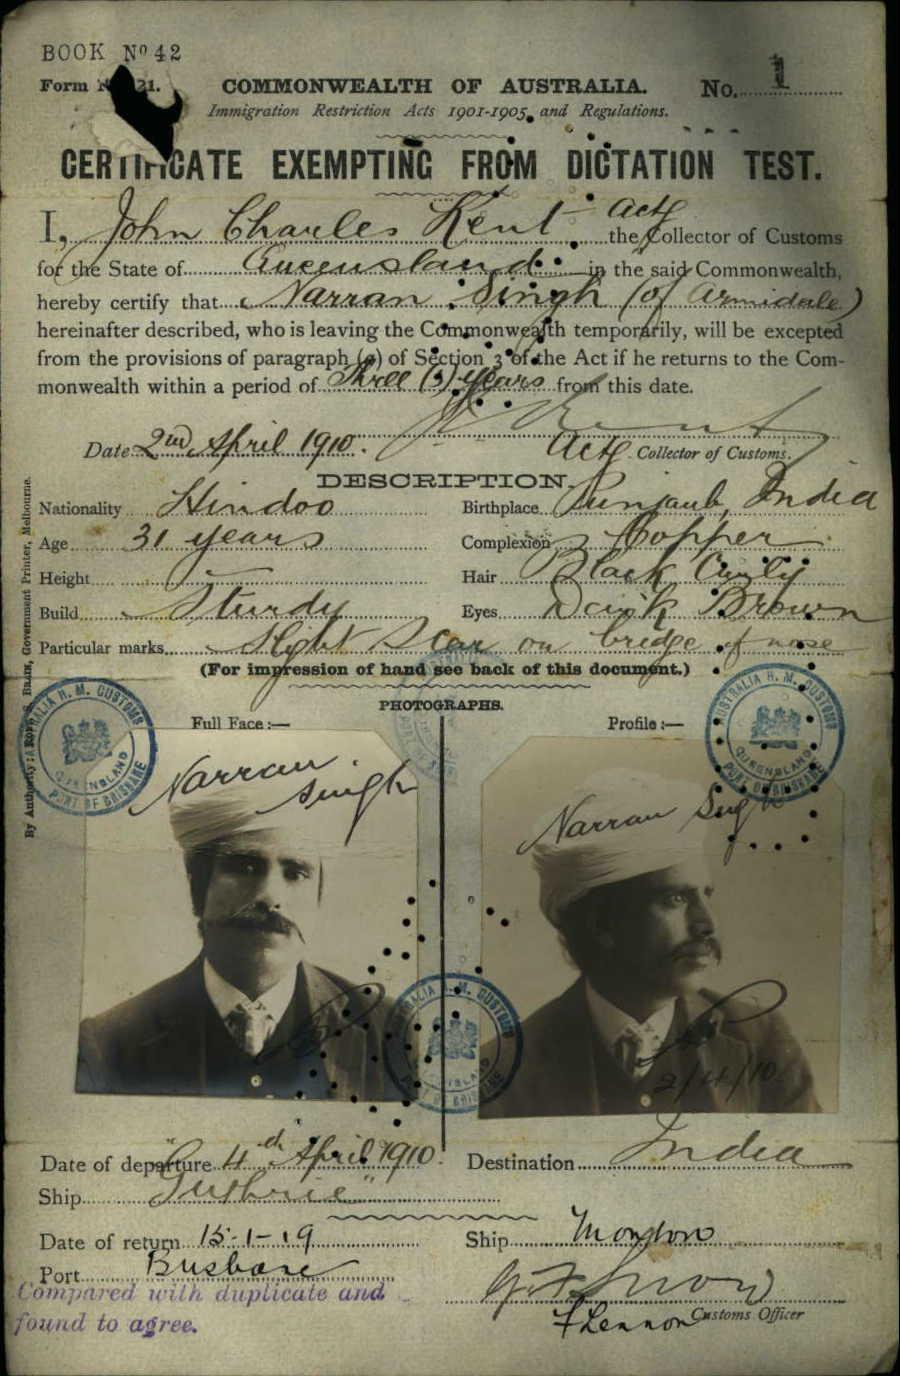 BOOK No 42
Form No 21.
COMMONWEALTH OF AUSTRALIA.
No. 1
Immigration Restriction Acts 1901-1905, and Regulations.
CERTIFICATE EXEMPTING FROM DICTATION TEST.
I, John Charles Kent Actg the Collector of Customs
for the State of Queensland in the said Commonwealth,
hereby certify that Narran Singh (of Armidale)
hereinafter described, who is leaving the Commonwealth temporarily, will be excepted
from the provisions of paragraph (a) of Section 3 of the Act if he returns to the Com-
monwealth within a period of Three (3) years from this date.
J C Kent
Date 2nd April 1910. Actg Collector of Customs.
DESCRIPTION.
Nationality Hindoo Birthplace Punjaub, India
Age 31 years Complexion Copper
Height Hair Black Curly
Build Sturdy Eyes Dark Brown
Particular marks Slight Scar on bridge of nose
(For impression of hand see back of this document.)
PHOTOGRAPHS.
Full Face :— Profile :—
AUSTRALIA H. M. CUSTOMS
QUEENSLAND
PORT OF BRISBANE
AUSTRALIA H. M. CUSTOMS
QUEENSLAND
PORT OF BRISBANE
Narran Singh
Narran Singh
2/4/10
AUSTRALIA H. M. CUSTOMS
QUEENSLAND
PORT OF BRISBANE
Date of departure 4th April 1910. Destination India
Ship "Guthrie"
Date of return 15-1-19 Ship
Port Brisbane
Compared with duplicate and
found to agree.
F Lennon Customs Officer
Government Printer, Melbourne.